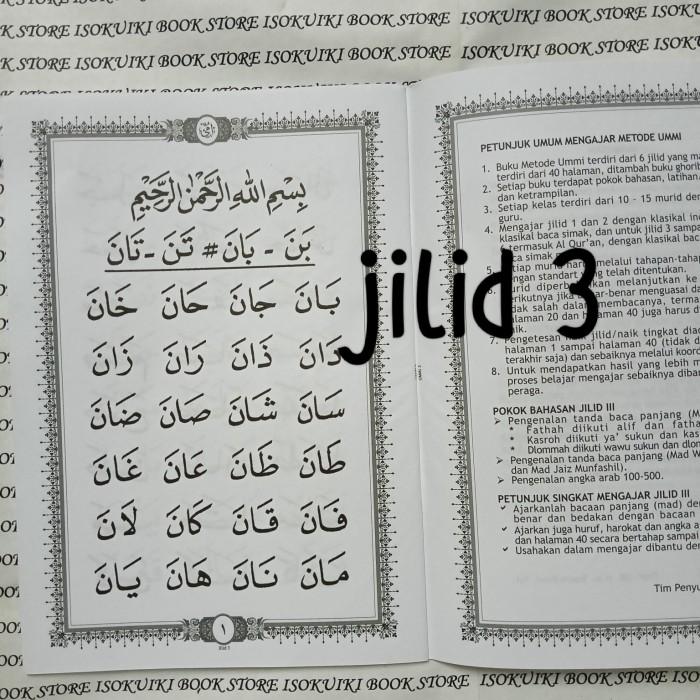 K STORE ISOKUIKI BOOK STORE ISOKUIKI BOOK STORE ISOKUIKI BOOK STORE
K STORE ISOKUIKI BOOK STORE ISOKUIKI BOOK STORE ISOKUIKI BOOK STORE
بِسْمِ اللهِ الرَّحْمٰنِ الرَّحِيْمِ
بَنَ - بَانَ # تَنَ - تَانَ
بَانَ جَانَ حَانَ خَانَ
دَانَ ذَانَ رَانَ زَانَ
سَانَ شَانَ صَانَ ضَانَ
طَانَ ظَانَ عَانَ غَانَ
فَانَ قَانَ كَانَ لَانَ
مَانَ نَانَ هَانَ يَانَ
١
Jilid 3
jilid 3
PETUNJUK UMUM MENGAJAR METODE UMMI
1. Buku Metode Ummi terdiri dari 6 jilid yang
terdiri dari 40 halaman, ditambah buku
2. Setiap buku terdapat pokok bahasan, latihan
dan ketrampilan.
3. Setiap kelas terdiri dari 10 - 15 murid
guru.
4. Mengajar jilid 1 dan 2 dengan klasikal
klasikal baca simak, dan untuk jilid 3
termasuk Al Qur'an, dengan klasikal
simak
melalui
dengan standart yang telah ditentukan.
melanjutkan ke
benar menguasai
membacanya,
halaman 20 dan halaman 40 juga harus
7. Pengetesan jilid/naik tingkat
halaman 1 sampai halaman 40 (tidak
terakhir saja) dan sebaiknya melalui
8. Untuk mendapatkan hasil yang lebih
proses belajar mengajar sebaiknya
peraga.
POKOK BAHASAN JILID III
➢ Pengenalan tanda baca panjang
* Fathah diikuti alif dan
* Kasroh diikuti ya' sukun dan
* Dlommah diikuti wawu sukun dan
➢ Pengenalan tanda baca panjang (Mad
dan Mad Jaiz Munfashil).
➢ Pengenalan angka arab 100-500.
PETUNJUK SINGKAT MENGAJAR JILID III
✓ Ajarkanlah bacaan panjang (mad)
benar dan bedakan dengan bacaan
✓ Ajarkan juga huruf, harokat dan angka
dan halaman 40 secara bertahap sampai
✓ Usahakan dalam mengajar dibantu
Tim
BOOK STORE ISOKUIKI BOOK STORE ISOKUIKI BOOK STORE ISOKUIKI BOOK STORE